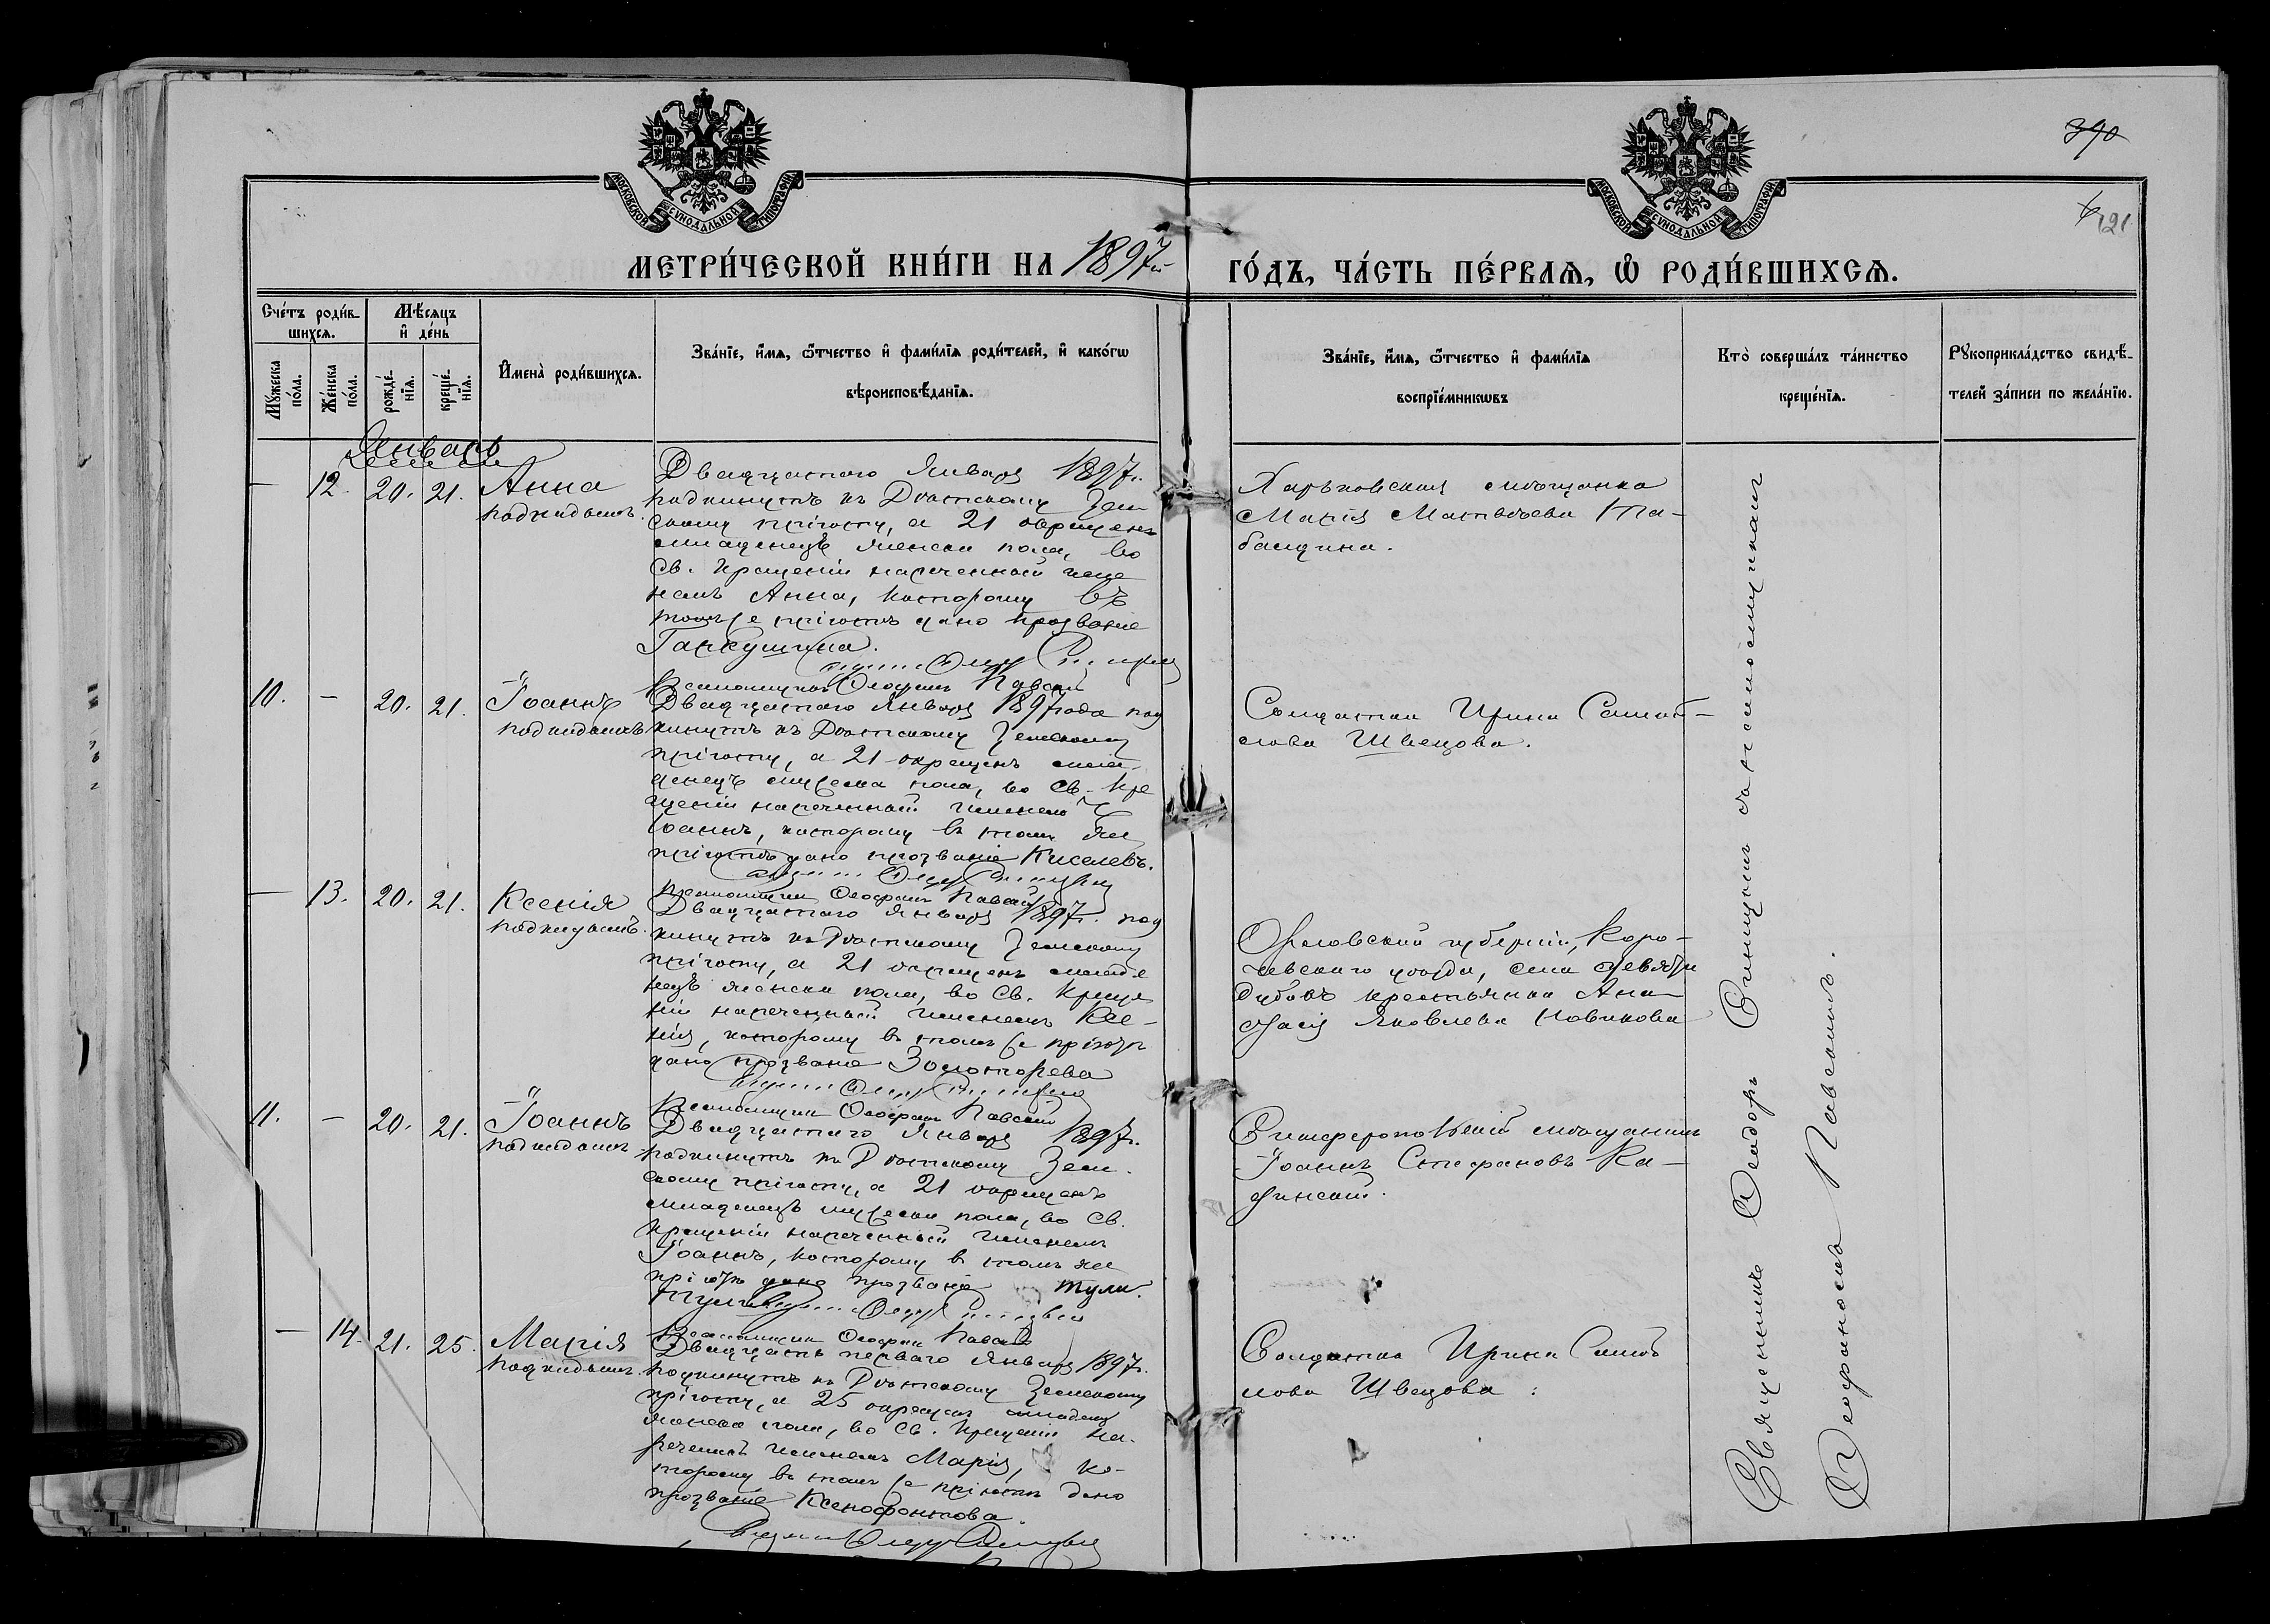 МОСКОВСКОЙ СѴНОДАЛЬНОЙ ТИПОГРАФІИ
МОСКОВСКОЙ СѴНОДАЛЬНОЙ ТИПОГРАФІИ
390
121
МЕТРИ́ЧЕСКОЙ КНИ́ГИ НА 1897й
ГО́ДЪ, ЧА́СТЬ ПЕ́РВАѦ, Ѡ҆ РОДИ́ВШИХСѦ.
Сче́тъ роди́в-
шихсѧ.
Мѣ́сѧцъ
и҆ де́нь
Мꙋ́жеска
по́ла.
Же́нска
по́ла.
рожде́-
нїѧ.
креще́-
нїѧ.
И҆мена̀ роди́вшихсѧ.
Зва́нїе, и҆́мѧ, ѻ҆́тчество и҆ фами́лїѧ роди́телей, и҆ како́гѡ
вѣроисповѣ́данїѧ.
Зва́нїе, и҆́мѧ, ѻ҆́тчество и҆ фами́лїѧ
воспрїе́мникѡвъ
Кто̀ соверша́лъ та́инство
креще́нїѧ.
Рꙋкоприкла́дство свидѣ́-
телей за́писи по жела́нїю.
Январь
— 12. 20. 21. Анна
подкидышъ.
Двадцатаго Января 1897г.
подкинутъ къ Дѣтскому Зем
скому пріюту, а 21 окрещенъ
младенецъ женска пола, во
Св. Крещеніи нареченный име
немъ Анна, которому въ
томъ же пріютѣ дано прозваніе
Гаркушина.
Харьковская мѣщанка
Марія Матвѣева
10. — 20. 21. Іоаннъ
подкидышъ
Псаломщикъ Павскій
Двадцатаго Января 1897 года под
кинутъ къ Дѣтскому Земскому
пріюту, а 21 окрещенъ мла-
денецъ мужеска пола, во Св. Кре
щеніи нареченный именемъ
Іоаннъ, которому въ томъ же
пріютѣ дано прозваніе Киселевъ.
Солдатка Ирина Самой-
лова Швецова.
— 13. 20. 21. Ксенія
подкидышъ.
Псаломщикъ Павскій
Двадцатаго Января 1897г. под
кинутъ къ Дѣтскому Земскому
пріюту, а 21 окрещенъ младе
нецъ женска пола, во Св. Креще
ніи нареченный именемъ Ксе-
нія, которому въ томъ же пріютѣ
дано прозваніе Золоторева
Орловской губерніи, Кара-
чевскаго уѣзда, села
крестьянка Ана-
стасія Яковлева Новикова
11. — 20. 21. Іоаннъ
подкидышъ
Псаломщикъ Павскій
Двадцатаго Января 1897г.
подкинутъ къ Дѣтскому Зем-
скому пріюту, а 21 окрещенъ
младенецъ мужеска пола, во Св.
Крещеніи нареченный именемъ
Іоаннъ, которому въ томъ же
пріютѣ дано прозваніе
Симферопольскій мѣщанинъ
Іоаннъ Стефановъ Ка-
финскій.
— 14. 21. 25. Марія
подкидышъ.
Псаломщикъ Павскій
Двадцать перваго Января 1897г.
подкинутъ къ Дѣтскому Земскому
пріюту, а 25 окрещенъ младенец
женска пола, во Св. Крещеніи на-
реченный именемъ Марія, ко-
торому въ томъ же пріютѣ дано
прозваніе Ксенофонтова.
Солдатка Ирина Самой
лова Швецова.
Священникъ Ѳеодоръ съ псаломщикомъ
Павскимъ.